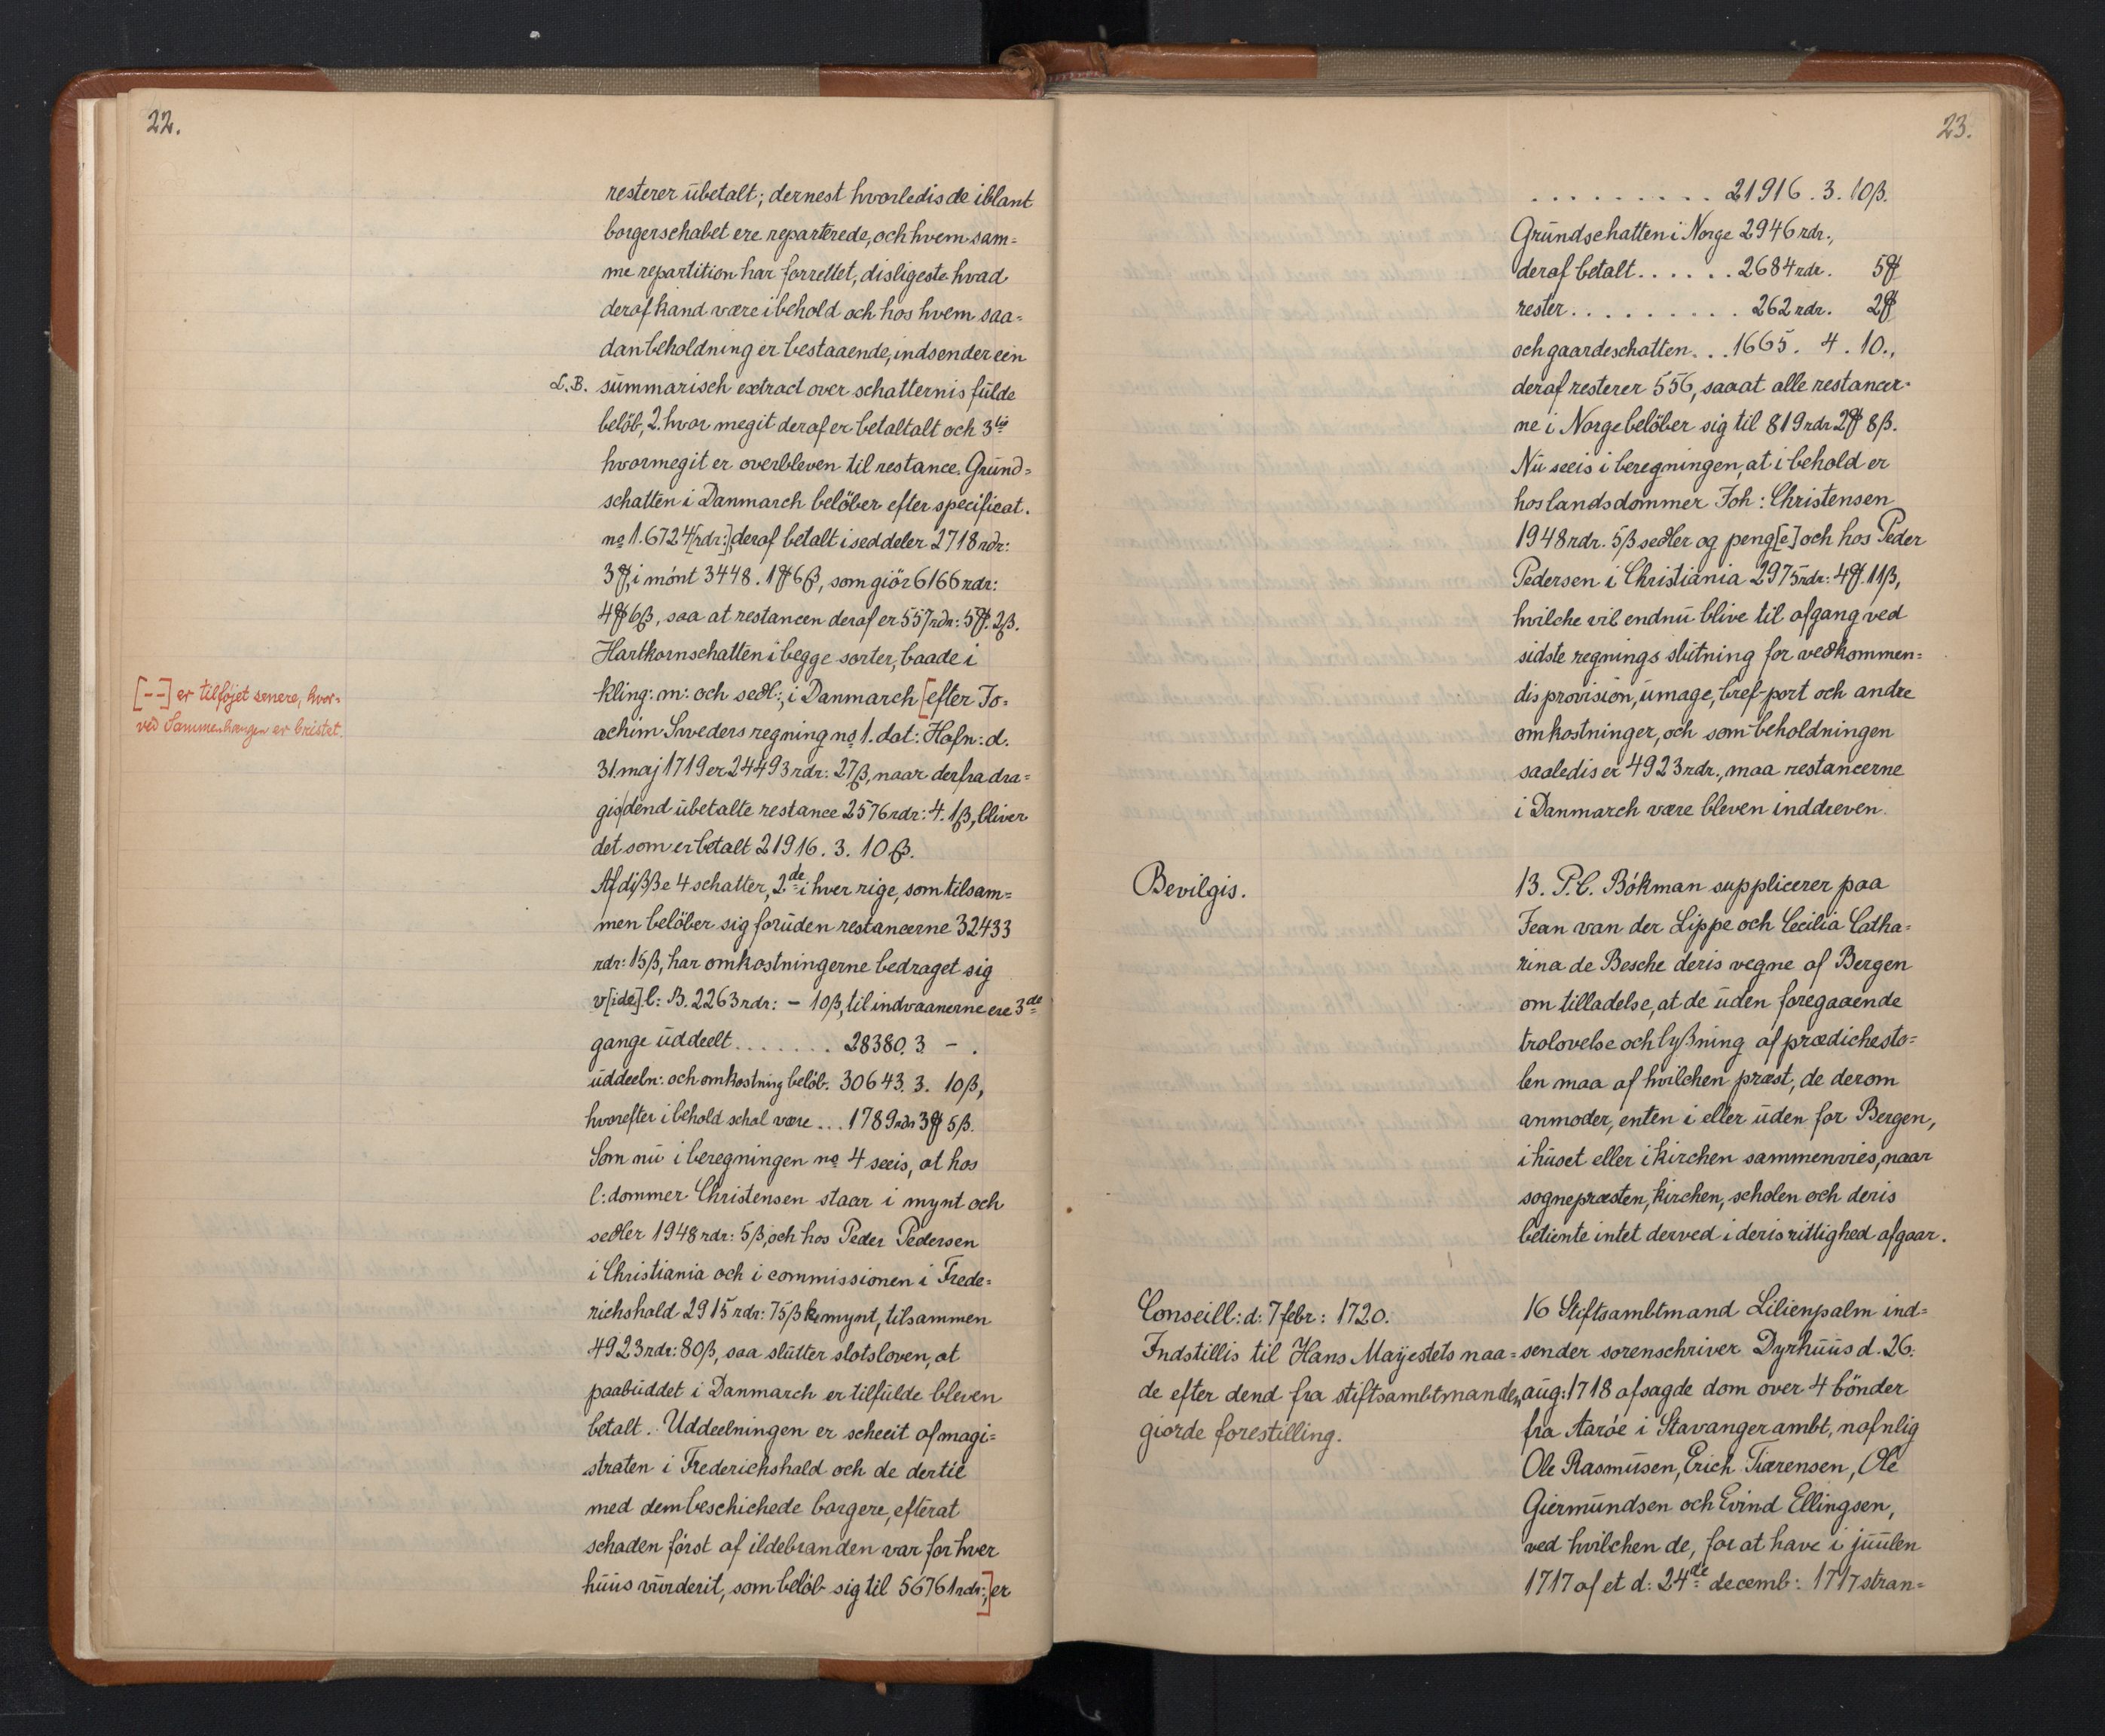 22.
resterer ubetalt; dernest hvorledis de iblant
borgerschabet ere reparterede, och hvem sam=
me repartition har forrettet, disligeste hvad
deraf kand være i behold och hos hvem saa=
dan beholdning er bestaaende, indsender een
L.B. summarisch extract over schatternis fulde
beløb, 2. hvor megit deraf er betaltalt och 3tio
hvormegit er overbleven til restance. Grund=
schatten i Danmarch beløber efter specificat.
no 1. 6724 [rdr:], deraf betalt i seddeler 2718 rdr:
3 ℔, i mønt 3448. 1 ℔ 6 ß, som giör 6166 rdr:
4 ℔ 6 ß, saa at restancen deraf er 557 rdr: 5 ℔. 2 ß.
Hartkornschatten i begge sorter, baade i
kling: m: och sedl:, i Danmarch [efter Jo=
achim Sweders regning no 1. dat: Hafn: d.
31 maj 1719 er 24493 rdr: 27 ß, naar derfra dra=
gis dend ubetalte restance 2576 rdr: 4. 1 ß, bliver
det som er betalt 21916. 3. 10 ß.
Af dißße 4 schatter, 2de i hver rige, som tilsam=
men beløber sig foruden restancerne 32433
rdr: 15 ß, har omkostningerne bedraget sig
v[ide] l: B. 2263 rdr: – 10 ß, til indvaanerne ere 3de
gange uddeelt ....... 28380. 3 – .
uddeeln: och omkostning beløb. 30643. 3. 10 ß,
hvorefter i behold schal være ... 1789 rdr 3 ℔ 5 ß.
Som nu i beregningen no 4 seeis, at hos
l: dommer Christensen staar i mynt och
sedler 1948 rdr: 5 ß, och hos Peder Pedersen
i Christiania och i commissionen i Frede=
richshald 2915 rdr: 75 ß k. mynt, tilsammen
4923 rdr: 80 ß, saa slutter slotsloven, at
paabuddet i Danmarch er tilfulde bleven
betalt. Uddeelningen er scheeit af magi=
straten i Frederichshald och de dertil
med dem beschichede borgere, efterat
schaden först af ildebranden var for hver
huus vurderit, som beløb sig til 56761 rdr:,] er
[--] er tilföjet senere, hvor=
ved Sammenhængen er bristet.
23.
.......... 21916. 3. 10 ß.
Grundschatten i Norge 2946 rdr.,
deraf betalt ...... 2684 rdr. 5 ℔
rester ......... 262 rdr. 2 ℔
och gaardeschatten ... 1665. 4. 10.,
deraf resterer 556, saaat alle restancer=
ne i Norge belöber sig til 819 rdr 2 ℔ 8 ß.
Nu seeis i beregningen, at i behold er
hos landsdommer Joh: Christensen
1948 rdr. 5 ß sedler og peng[e] och hos Peder
Pedersen i Christiania 2975 rdr: 4 ℔. 11 ß,
hvilche vil endnu blive til afgang ved
sidste regnings slutning for vedkommen=
dis provision, umage, bref-port och andre
omkostninger, och som beholdningen
saaledis er 4923 rdr., maa restancerne
i Danmarch være bleven inddreven.
Bevilgis.
13. P. C. Bökman supplicerer paa
Jean van der Lippe och Cecilia Catha=
rina de Besche deris vegne af Bergen
om tilladelse, at de uden foregaaende
trolovelse och lyßning af prædichesto=
len maa af hvilchen præst, de derom
anmoder, enten i eller uden for Bergen,
i huset eller i kirchen sammenvies, naar
sognepræsten, kirchen, scholen och deris
betiente intet derved i deris rittighed afgaar.
Conseill: d: 7 febr: 1720.
Indstillis til Hans Mayestets naa=
de efter dend fra stiftsambtmanden
giorde forestilling.
16 Stiftsambtmand Lilienpalm ind=
sender sorenschriver Dyrhuus d. 26.
aug: 1718 afsagde dom over 4 bönder
fra Aaröe i Stavanger ambt, nafnlig
Ole Rasmusen, Erich Tiærensen, Ole
Giermundsen och Evind Ellingsen,
ved hvilchen de, for at have i juulen
1717 af et d: 24de decemb: 1717 stran=